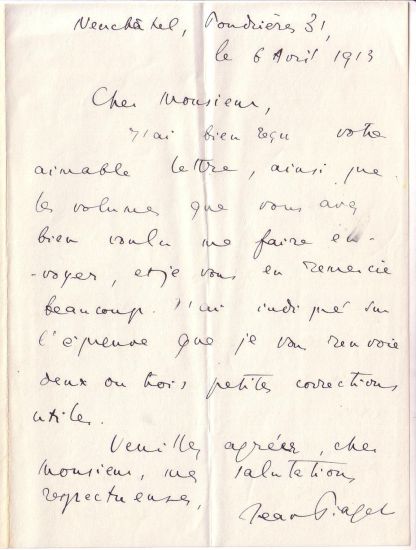 Neuchâtel, Poudrières 31,
le 6 Avril 1913
Cher Monsieur,
J'ai bien reçu votre
aimable lettre, ainsi que
les volumes que vous avez
bien voulu me faire en-
-voyer, et je vous en remercie
beaucoup. J'ai indiqué sur
l'épreuve que je vous renvoie
deux ou trois petites corrections
utiles.
Veuillez agréer, cher
Monsieur, mes salutations
respectueuses,
Jean Piaget